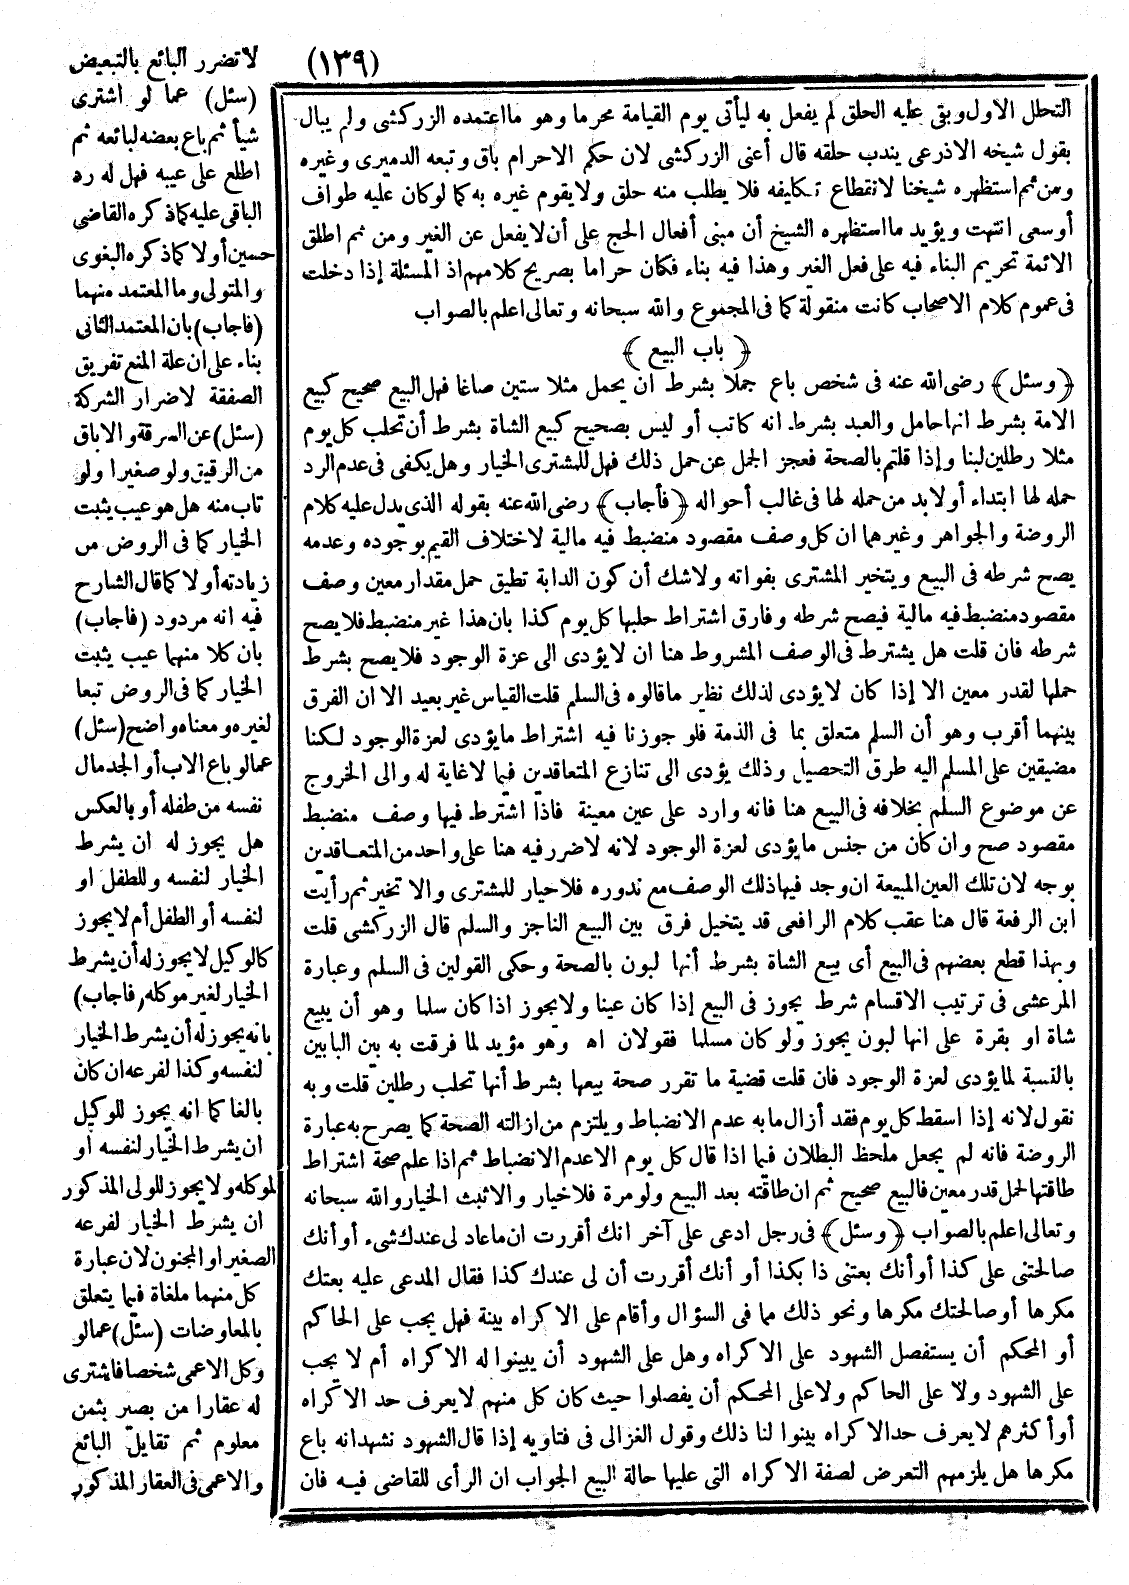 (١٣٩)
التحلل الاول وبقى عليه الحلق لم يفعل به ليأتى يوم القيامة محرما وهو ما اعتمده الزركشى ولم يبال
بقول شيخه الاذرعى يندب حلقه قال أعنى الزركشى لان حكم الاحرام باق وتبعه الدميرى وغيره
ومن ثم استظهره شيخنا لانقطاع تكليفه فلا يطلب منه حلق ولا يقوم غيره به كما لو كان عليه طواف
أو سعى انتهت ويؤيد ما استظهره الشيخ أن مبنى أفعال الحج على أن لا يفعل عن الغير ومن ثم اطلق
الائمة تحريم البناء فيه على فعل الغير وهذا فيه بناء فكان حراما بصريح كلامهم اذ المسئلة إذا دخلت
فى عموم كلام الاصحاب كانت منقولة كما فى المجموع والله سبحانه وتعالى اعلم بالصواب
﴿ باب البيع ﴾
﴿وسئل﴾ رضى الله عنه فى شخص باع جملا بشرط ان يحمل مثلا ستين صاغا فهل البيع صحيح كبيع
الامة بشرط انها حامل والعبد بشرط انه كاتب أو ليس بصحيح كبيع الشاة بشرط أن تحلب كل يوم
مثلا رطلين لبنا وإذا قلتم بالصحة فعجز الجمل عن حمل ذلك فهل للمشترى الخيار وهل يكفى فى عدم الرد
حمله لها ابتداء أو لا بد من حمله لها فى غالب أحواله ﴿فأجاب﴾ رضى الله عنه بقوله الذى يدل عليه كلام
الروضة والجواهر وغيرهما ان كل وصف مقصود منضبط فيه مالية لاختلاف القيم بوجوده وعدمه
يصح شرطه فى البيع ويتخير المشترى بفواته ولا شك أن كون الدابة تطيق حمل مقدار معين وصف
مقصود منضبط فيه مالية فيصح شرطه وفارق اشتراط حلبها كل يوم كذا بان هذا غير منضبط فلا يصح
شرطه فان قلت هل يشترط فى الوصف المشروط هنا ان لا يؤدى الى عزة الوجود فلا يصح بشرط
حملها لقدر معين الا إذا كان لا يؤدى لذلك نظير ما قالوه فى السلم قلت القياس غير بعيد الا ان الفرق
بينهما أقرب وهو أن السلم متعلق بما فى الذمة فلو جوزنا فيه اشتراط ما يؤدى لعزة الوجود لكنا
مضيقين على المسلم اليه طرق التحصيل وذلك يؤدى الى تنازع المتعاقدين فيما لا غاية له والى الخروج
عن موضوع السلم بخلافه فى البيع هنا فانه وارد على عين معينة فاذا اشترط فيها وصف منضبط
مقصود صح وان كان من جنس ما يؤدى لعزة الوجود لانه لا ضرر فيه هنا على واحد من المتعاقدين
بوجه لان تلك العين المبيعة ان وجد فيها ذلك الوصف مع ندوره فلا خيار للمشترى والا تخير ثم رأيت
ابن الرفعة قال هنا عقب كلام الرافعى قد يتخيل فرق بين البيع الناجز والسلم قال الزركشى قلت
وبهذا قطع بعضهم فى البيع أى بيع الشاة بشرط أنها لبون بالصحة وحكى القولين فى السلم وعبارة
المرعشى فى ترتيب الاقسام شرط يجوز فى البيع إذا كان عينا ولا يجوز اذا كان سلما وهو أن يبيع
شاة او بقرة على انها لبون يجوز ولو كان مسلما فقولان اه وهو مؤيد لما فرقت به بين البابين
بالنسبة لما يؤدى لعزة الوجود فان قلت قضية ما تقرر صحة بيعها بشرط أنها تحلب رطلين قلت وبه
نقول لانه إذا اسقط كل يوم فقد أزال ما به عدم الانضباط ويلتزم من ازالته الصحة كما يصرح به عبارة
الروضة فانه لم يجعل ملحظ البطلان فيما اذا قال كل يوم الا عدم الانضباط ثم اذا علم صحة اشتراط
طاقتها لحمل قدر معين فالبيع صحيح ثم ان طاقته بعد البيع ولو مرة فلا خيار والا ثبت الخيار والله سبحانه
وتعالى اعلم بالصواب ﴿وسئل﴾ فى رجل ادعى على آخر انك أقررت ان ما عاد لى عندك شىء أو أنك
صالحتنى على كذا أو أنك بعتنى ذا بكذا أو أنك أقررت أن لى عندك كذا فقال المدعى عليه بعتك
مكرها أو صالحتك مكرها ونحو ذلك مما فى السؤال وأقام على الاكراه بينة فهل يجب على الحاكم
أو المحكم أن يستفصل الشهود على الاكراه وهل على الشهود أن يبينوا له الاكراه أم لا يجب
على الشهود ولا على الحاكم ولا على المحكم أن يفصلوا حيث كان كل منهم لا يعرف حد الاكراه
أو أكثرهم لا يعرف حد الاكراه بينوا لنا ذلك وقول الغزالى فى فتاويه إذا قال الشهود نشهد انه باع
مكرها هل يلزمهم التعرض لصفة الاكراه التى عليها حالة البيع الجواب ان الرأى للقاضى فيه فان
لا تضرر البائع بالتبعيض
(سئل) عما لو اشترى
شيأ ثم باع بعضه لبائعه ثم
اطلع على عيبه فهل له رد
الباقى عليه كما ذكره القاضى
حسين أو لا كما ذكره البغوى
والمتولى وما المعتمد منهما
(فاجاب) بان المعتمد الثانى
بناء على ان علة المنع تفريق
الصفقة لا ضرار الشركة
(سئل) عن السرقة والاباق
من الرقيق ولو صغيرا ولو
تاب منه هل هو عيب يثبت
الخيار كما فى الروض من
زيادته أو لا كما قال الشارح
فيه انه مردود (فاجاب)
بان كلا منهما عيب يثبت
الخيار كما فى الروض تبعا
لغيره ومعناه واضح (سئل)
عما لو باع الاب أو الجد مال
نفسه من طفله أو بالعكس
هل يجوز له ان يشرط
الخيار لنفسه وللطفل او
لنفسه أو الطفل أم لا يجوز
كالوكيل لا يجوز له أن يشرط
الخيار لغير موكله (فاجاب)
بانه يجوز له أن يشرط الخيار
لنفسه وكذا لفرعه ان كان
بالغا كما انه يجوز للوكيل
ان يشرط الخيار لنفسه أو
لموكله ولا يجوز للولى المذكور
ان يشرط الخيار لفرعه
الصغير او المجنون لان عبارة
كل منهما ملغاة فيما يتعلق
بالمعاوضات (سئل) عما لو
وكل الاعمى شخصا فاشترى
له عقارا من بصير بثمن
معلوم ثم تقايل البائع
والاعمى فى العقار المذكور